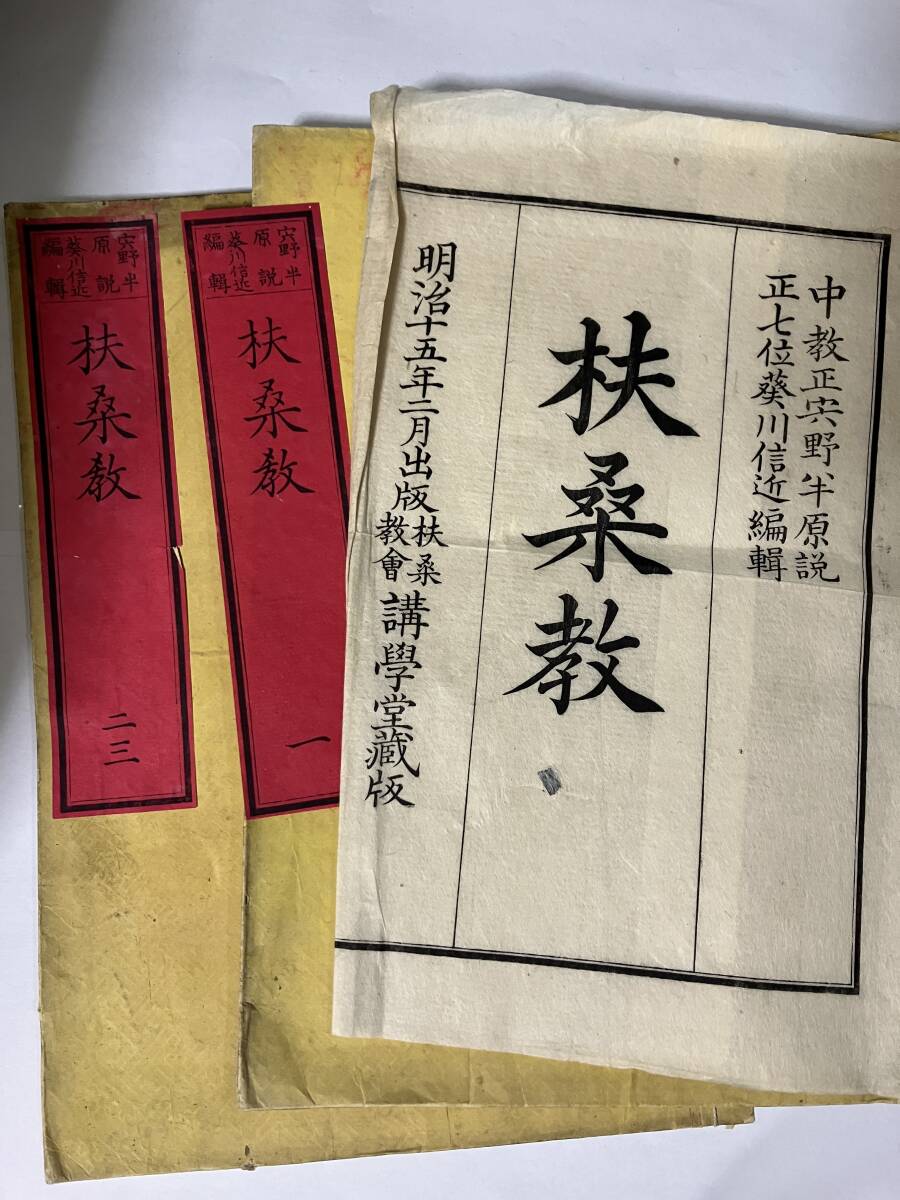 中教正宍野半原説
正七位葵川信近編輯
扶桑教
明治十五年二月出版
扶桑
教會
講學堂蔵版
宍野半
原説
葵川信近
編輯
扶桑教
一
宍野半
原説
葵川信近
編輯
扶桑教
二三